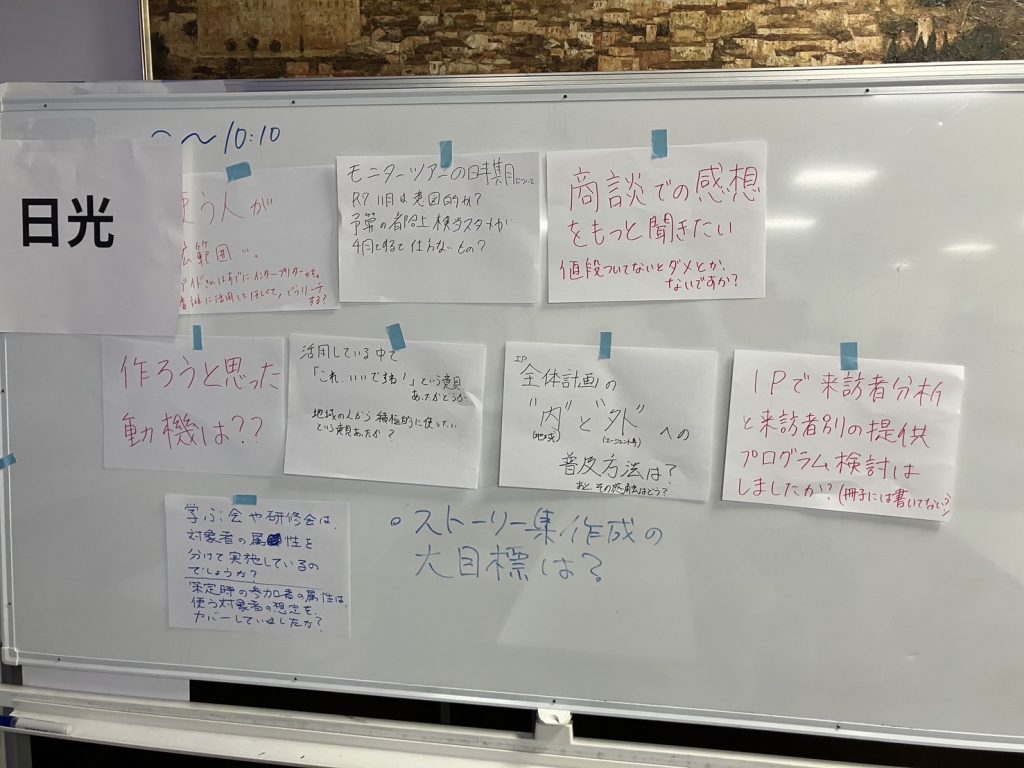 〜10:10
日光
使う人が
広範囲…
ガイドさんはすでにインタープリターかも。
に活用してほしくて、どうリーチ
する?
モニターツアーの時期について
R7 11月は意図的か?
予算の都合上検討スタートが
4月とすると仕方ないもの?
商談での感想
をもっと聞きたい
値段ついてないとダメとか、
ないですか?
作ろうと思った
動機は??
活用している中で、
「これ、いいですね!」という意見
あったかどうか
地域の人から積極的に使いたい
という意見あったか?
IP
「全体計画」の
"内"と"外"への
(地域) (エージェント等)
普及方法は?
あと、その感触はどう?
IPで来訪者分析
と来訪者別の提供
プログラム検討は
しましたか?(冊子には書いてない)
学ぶ会や研修会は、
対象者の属性を
分けて実施しているの
でしょうか?
策定時の参加者の属性は、
使う対象者の想定を、
カバーしていましたか?
。ストーリー集作成の
大目標は?